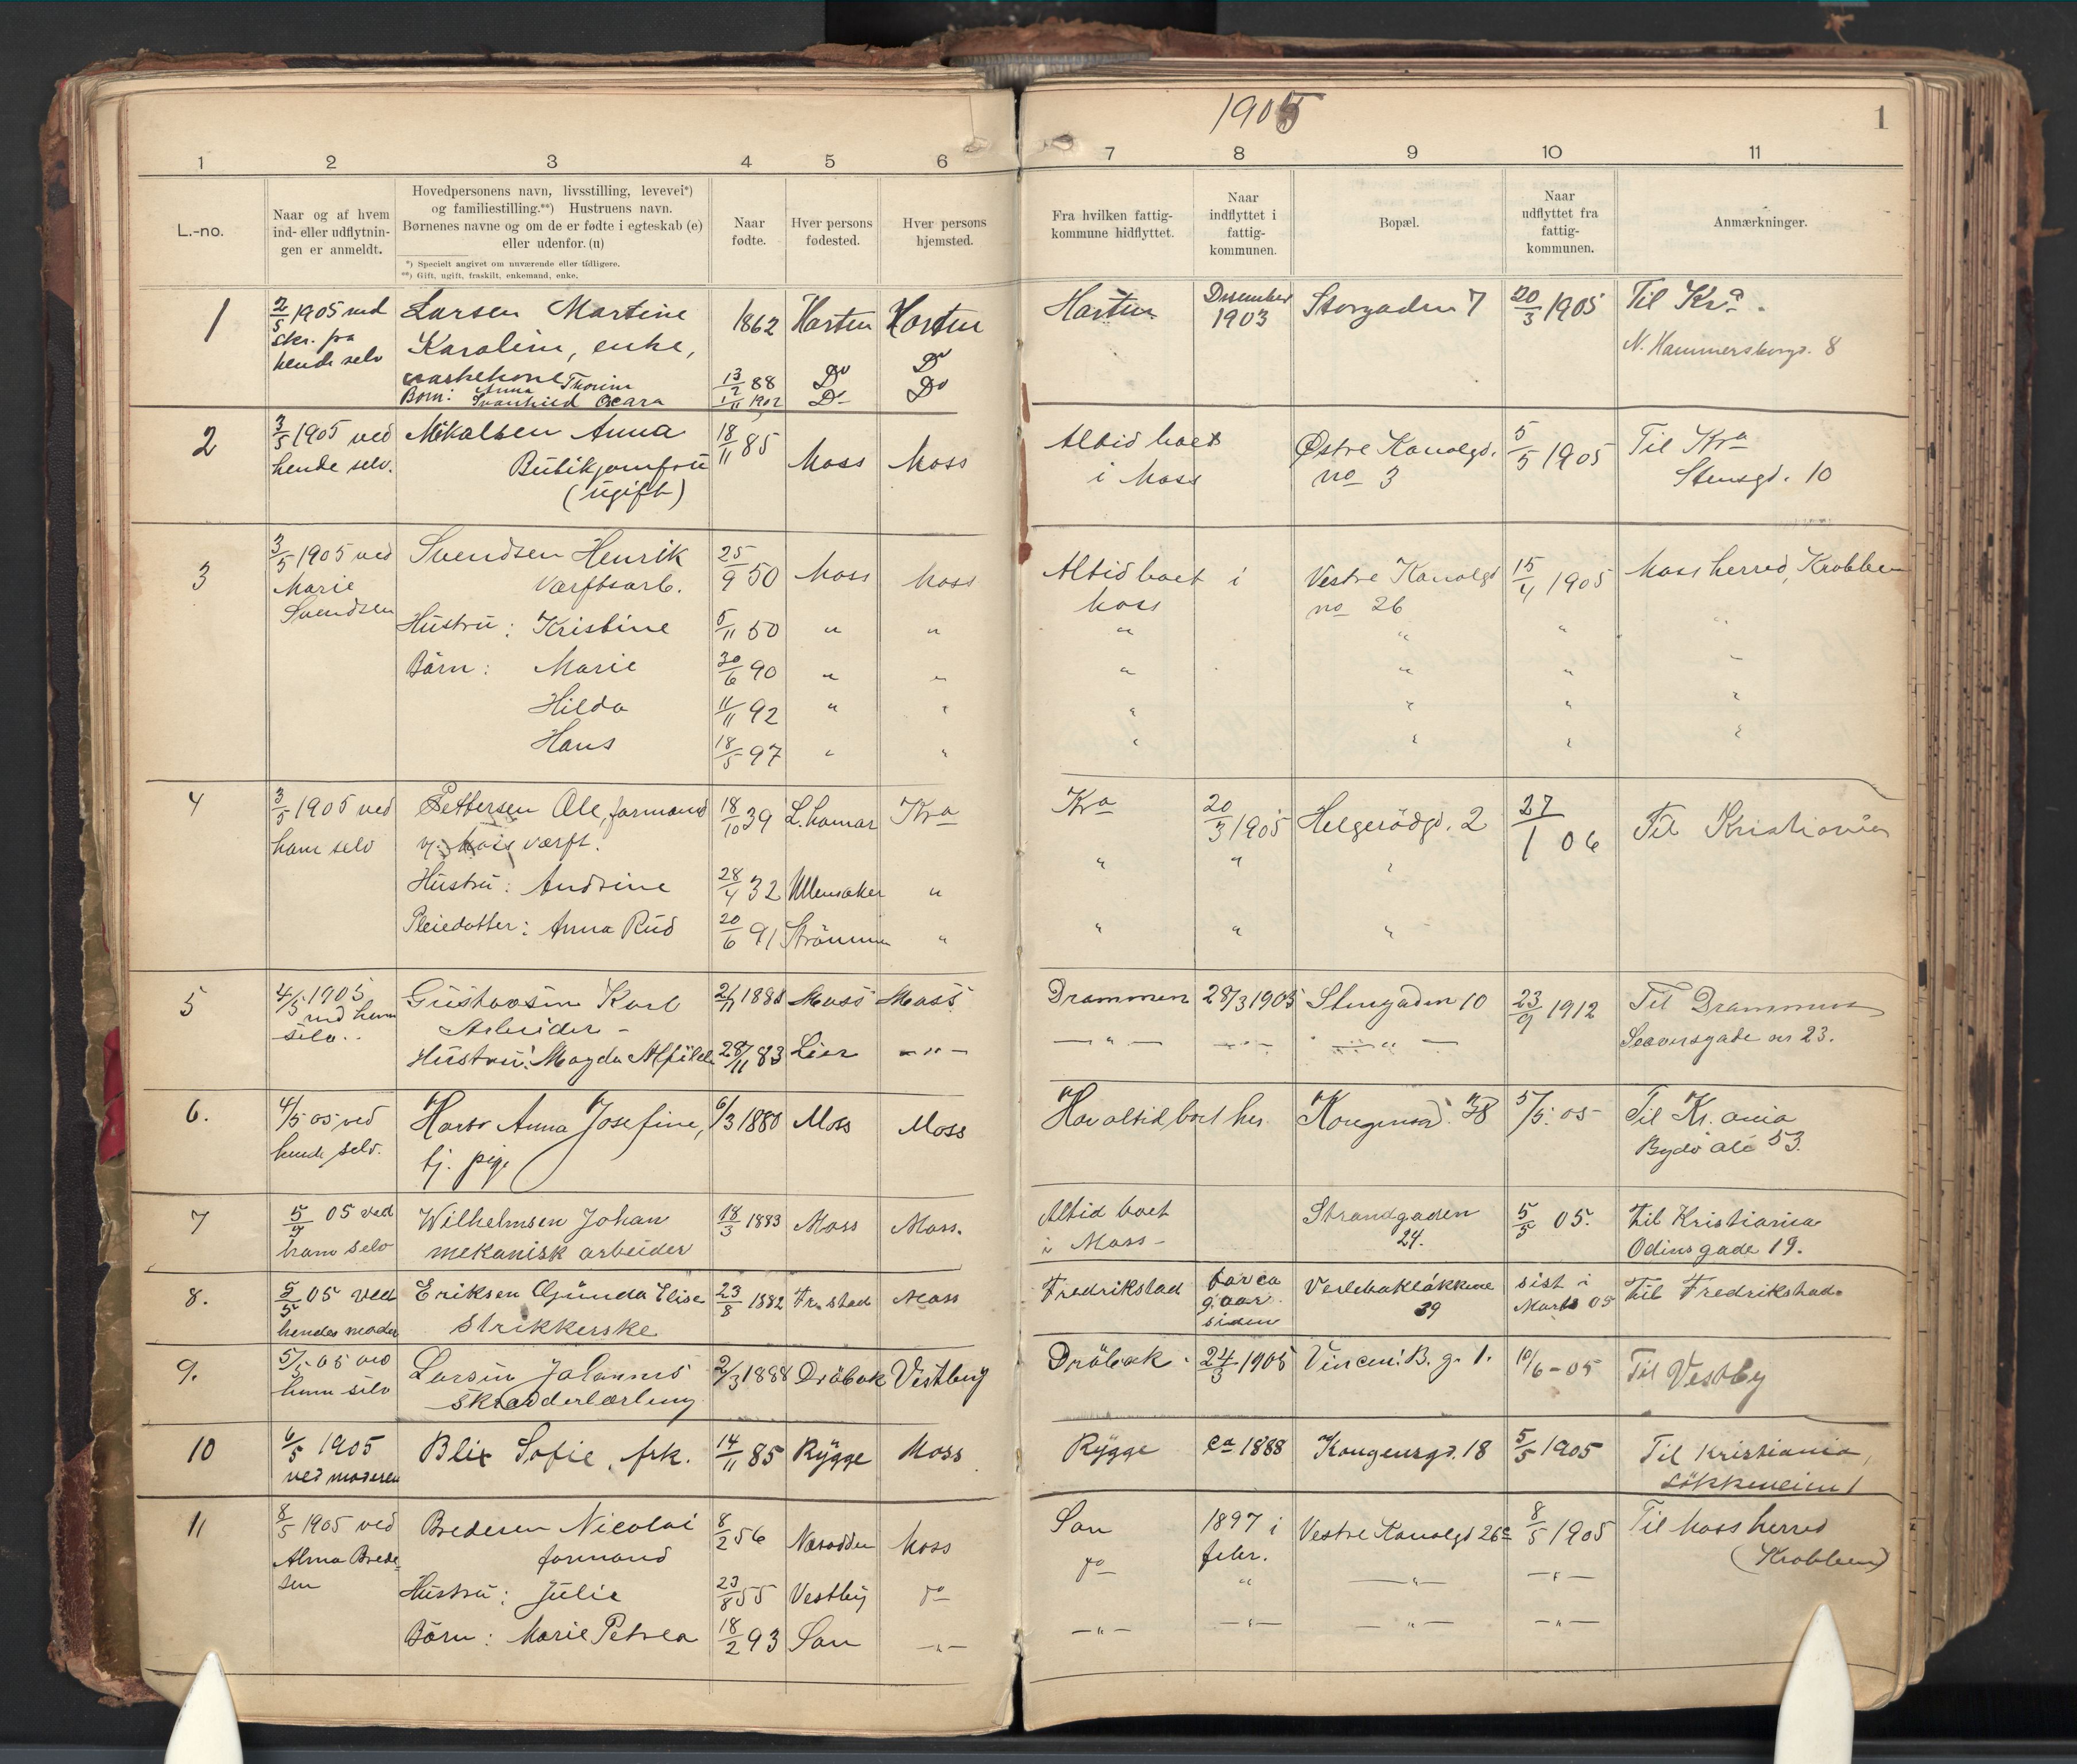 1905
1
1 2 3 4 5 6 7 8 9 10 11
L.-no.
Naar og af hvem
ind- eller udflytnin-
gen er anmeldt.
Hovedpersonens navn, livsstilling, levevei*)
og familiestilling.**) Hustruens navn.
Børnenes navne og om de er fødte i egteskab (e)
eller udenfor. (u)
*) Specielt angivet om nuværende eller tidligere.
**) Gift, ugift, fraskilt, enkemand, enke.
Naar
fødte.
Hver persons
fødested.
Hver persons
hjemsted.
Fra hvilken fattig-
kommune hidflyttet.
Naar
indflyttet i
fattig-
kommunen.
Bopæl.
Naar
udflyttet fra
fattig-
kommunen.
Anmærkninger.
1
2/5 1905 ved
skr. fra
hende selv
Larsen Martine
Karoline, enke,
vaskekone
Børn: Anna Thorine
Svanhild Oscara
1862 Horten Horten
13/2 88 Do Do
1902 Do Do
Horten
Desember
1903
Storgaden 7
20/3 1905
Til Kra.
N. Hammersborgg. 8
2
3/5 1905 ved
hende selv.
Mikalsen Anna
Butikjomfru
(ugift)
18/11 85 Moss Moss
Altid boet
i Moss
Østre Kanalgd.
no 3
5/5 1905
Til Kra
Stensgd. 10
3
3/5 1905 ved
Marie
Svendsen
Svendsen Henrik
Værftsarb.
25/9 50 Moss Moss
Hustru: Kristine 5/11 50 " "
Børn: Marie 30/6 90 " "
Hilda 11/11 92 " "
Hans 18/5 97 " "
Altid boet i
Moss
Vestre Kanalgd
no 26
15/4 1905
Moss herred, Krobben
" " " "
" " " "
" " " "
" " " "
4
3/5 1905 ved
ham selv
Pettersen Ole, formand
v. Moss værft.
18/10 39 L.hamar Kra
Hustru: Andrine 28/4 32 Ullensaker "
Pleiedatter: Anna Rud 20/6 91 Strömmen "
Kra
20/3 1905
Helgerödgd. 2
27/1 06
Til Kristiania
" " "
" " "
5
4/5 1905
ved ham
selv.
Gustavsen Karl
Arbeider -
1881 Moss Moss
Hustru: Magda Alfilde 28/11 83 Lier - " -
Drammen 28/3 1905 Stengaden 10 23/9 1912
Til Drammen
gade nr 23.
- " - - " - - " -
6.
4/5 05 ved
hende selv.
Anna Josefine,
tj. pige
6/3 1880 Moss Moss
Har altid boet her.
Kongensgd. 38
5/5. 05
Til Kr.ania
Bygdö alé 53.
7
5/5 05 ved
ham selv
Wilhelmsen Johan
mekanisk arbeider
18/3 1883 Moss Moss.
Altid boet
i Moss -
Strandgaden
24.
5/5 05.
til Kristiania
Odinsgade 19.
8.
5/5 05 ved
hendes moder
Eriksen Gunda Elise
Strikkerske
23/8 1882 Fr.stad Moss
Fredrikstad
for ca
9 aar
siden
Verlebakløkkene
39
sist i
Marts 05
til Fredrikstad.
9.
5/5 05 ved
ham selv
Larsen Johannes
Skrædderlærling
2/3 1888 Dröbak Vestby
Dröbak. 24/3 1905 Vincent B. g. 1. 10/6-05 Til Vestby
10
6/5 1905
ved moderen
Blix Sofie, frk.
14/11 85 Rygge Moss
Rygge ca 1888 Kongensgd. 18 5/5 1905
Til Kristiania,
Lökkeneim 1
11
8/5 1905 ved
Alma Brede-
sen
Bredesen Nicolai
formand
8/2 56 Næsodden Moss
Hustru: Julie 23/8 55 Vestby do
Børn: Marie Petrea 18/2 93 Son - " -
Son
do
1897 i
febr.
Vestre Kanalgd 26c
8/5 1905
Til Moss herred
(Krobben)
" - " - - " -
- " - - " - - " - - " -